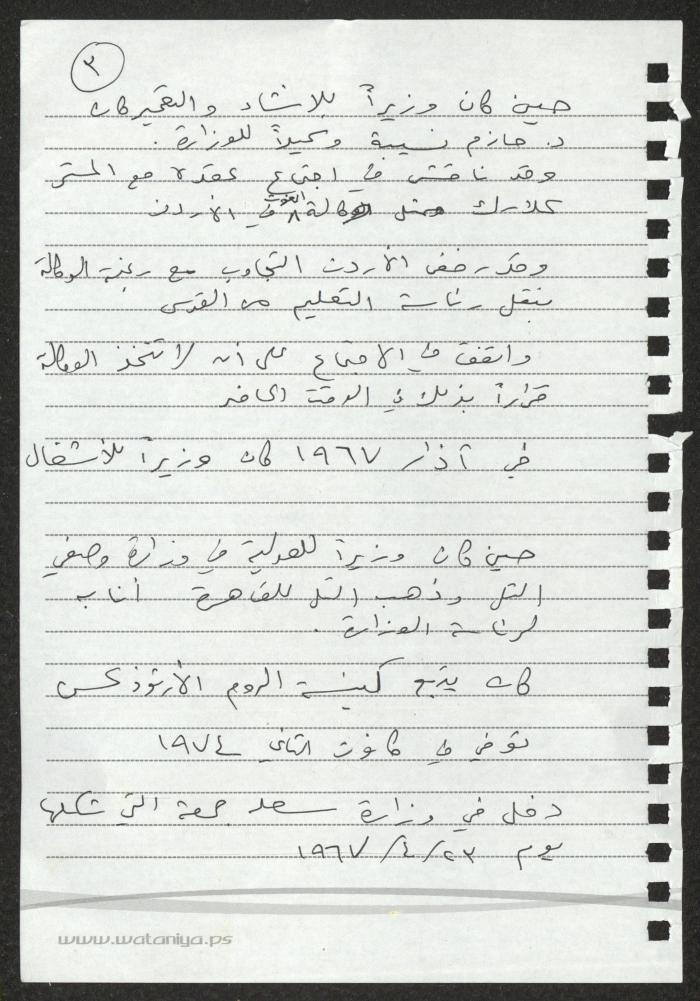 ٣
حين كان وزيراً للإنشاء والتعمير كان
د. حازم نسيبة وكيلاً للوزارة.
وقد ناقش في اجتماع عقده مع المستر
كلارك ممثل وكالة الغوث في الأردن
وقد رفض الأردن التجاوب مع رغبة الوكالة
بنقل رئاسة التعليم من القدس
واتفق في الاجتماع على أن لا تتخذ الوكالة
قراراً بذلك في الوقت الحاضر
في آذار ١٩٦٧ كان وزيراً للأشغال
حين كان وزيراً للعدلية في وزارة وصفي
التل وذهب التل للقاهرة أنابه
لرئاسة الوزارة.
كان يتبع كنيسة الروم الأرثوذكس
توفي في كانون الثاني ١٩٧٤
دخل في وزارة سعد جمعة التي شكلها
يوم ٢٣/٤/١٩٦٧
www.wataniya.ps